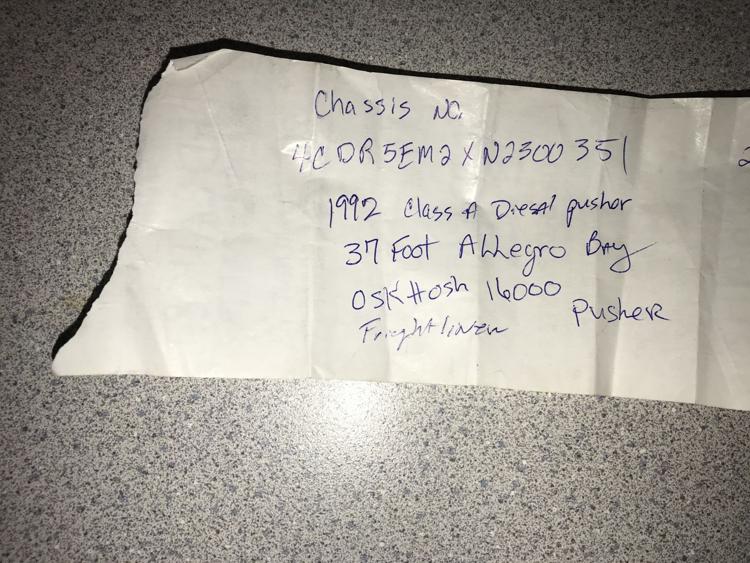 Chassis NO.
4CDR5EM2XN2300351
1992 Class A Diesal pusher
37 Foot Allegro Bay
OSKHosh 16000 Pusher
Frieghtliner
2